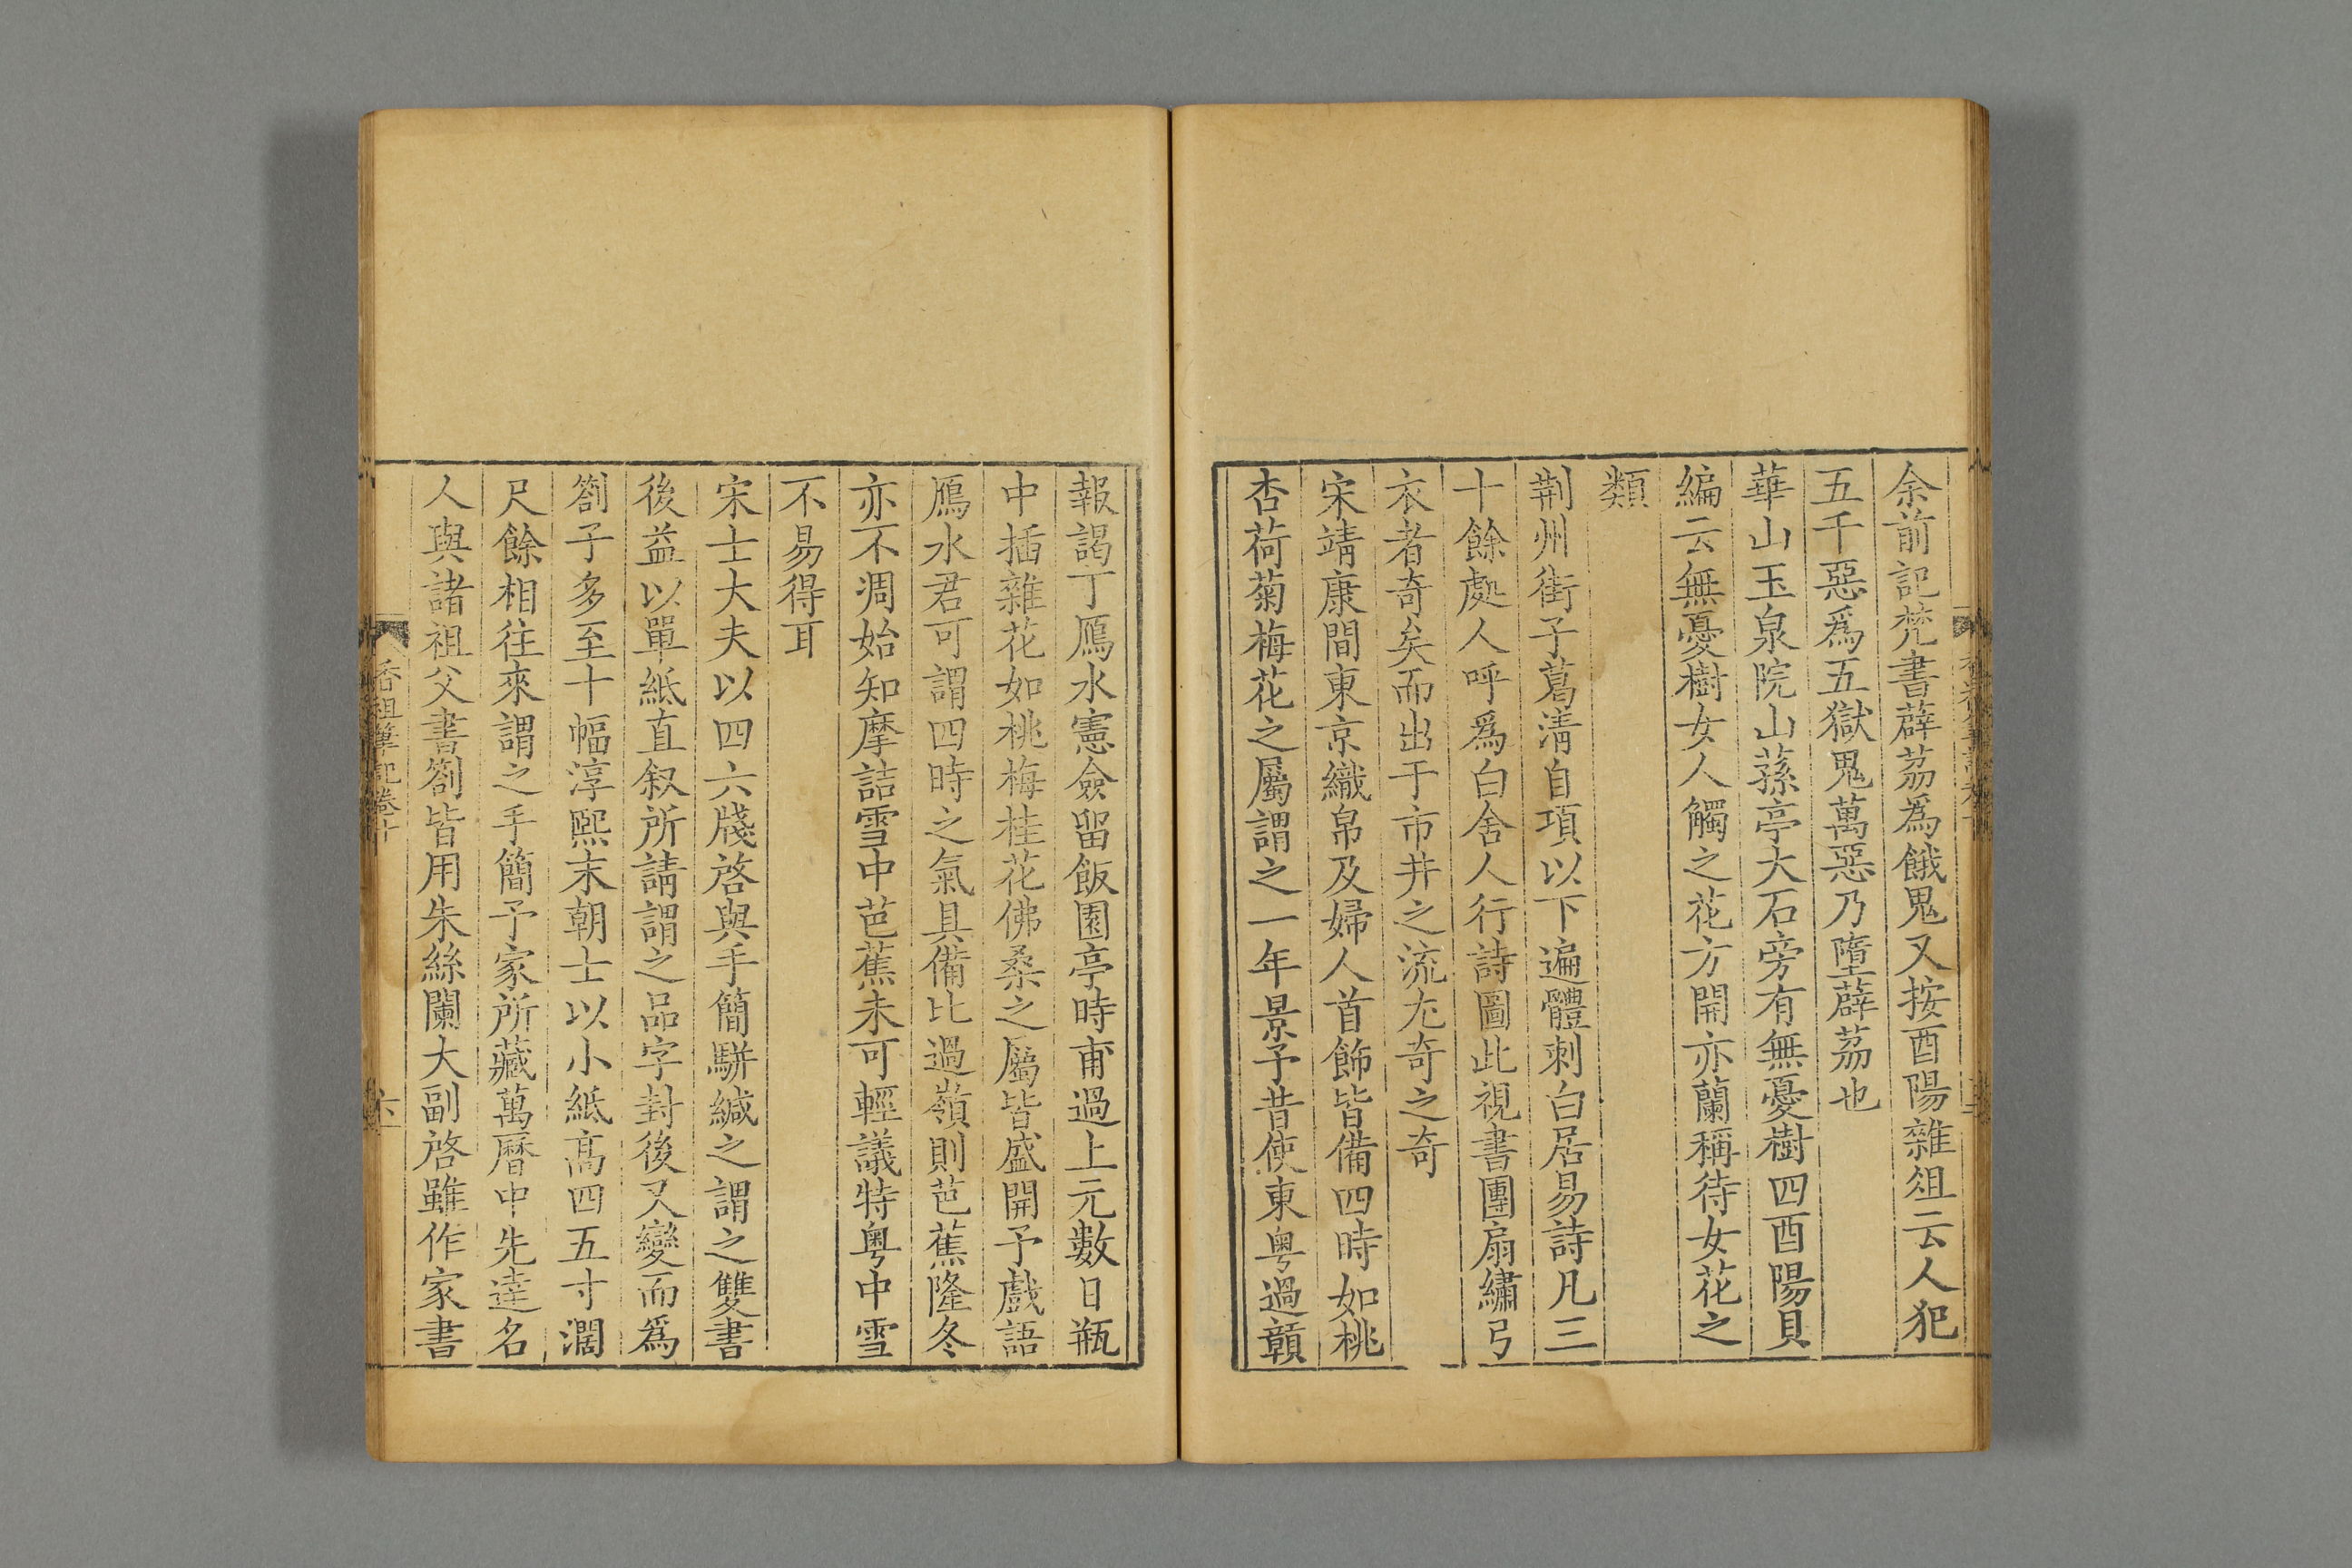 余前記梵書薜荔爲餓鬼又按酉陽雜俎云人犯
五千惡爲五獄鬼萬惡乃墮薜荔也
華山玉泉院山蓀亭大石旁有無憂樹四酉陽貝
編云無憂樹女人觸之花方開亦蘭稱待女花之
類
荆州街子葛清自項以下遍體刺白居易詩凡三
十餘處人呼爲白舍人行詩圖此視書團扇繡弓
衣者奇矣而出于市井之流尤奇之奇
宋靖康間東京織帛及婦人首飾皆備四時如桃
杏荷菊梅花之屬謂之一年景予昔使東粤過贛
報謁丁鴈水憲僉留飯園亭時甫過上元數日瓶
中插雜花如桃梅桂花佛桑之屬皆盛開予戲語
鴈水君可謂四時之氣具備比過嶺則芭蕉隆冬
亦不凋始知摩詰雪中芭蕉未可輕議特粤中雪
不易得耳
宋士大夫以四六牋啓與手簡駢緘之謂之雙書
後益以單紙直叙所請謂之品字封後又變而爲
劄子多至十幅淳熙末朝士以小紙高四五寸濶
尺餘相往來謂之手簡予家所藏萬曆中先達名
人與諸祖父書劄皆用朱絲闌大副啓雖作家書
香祖筆記卷十